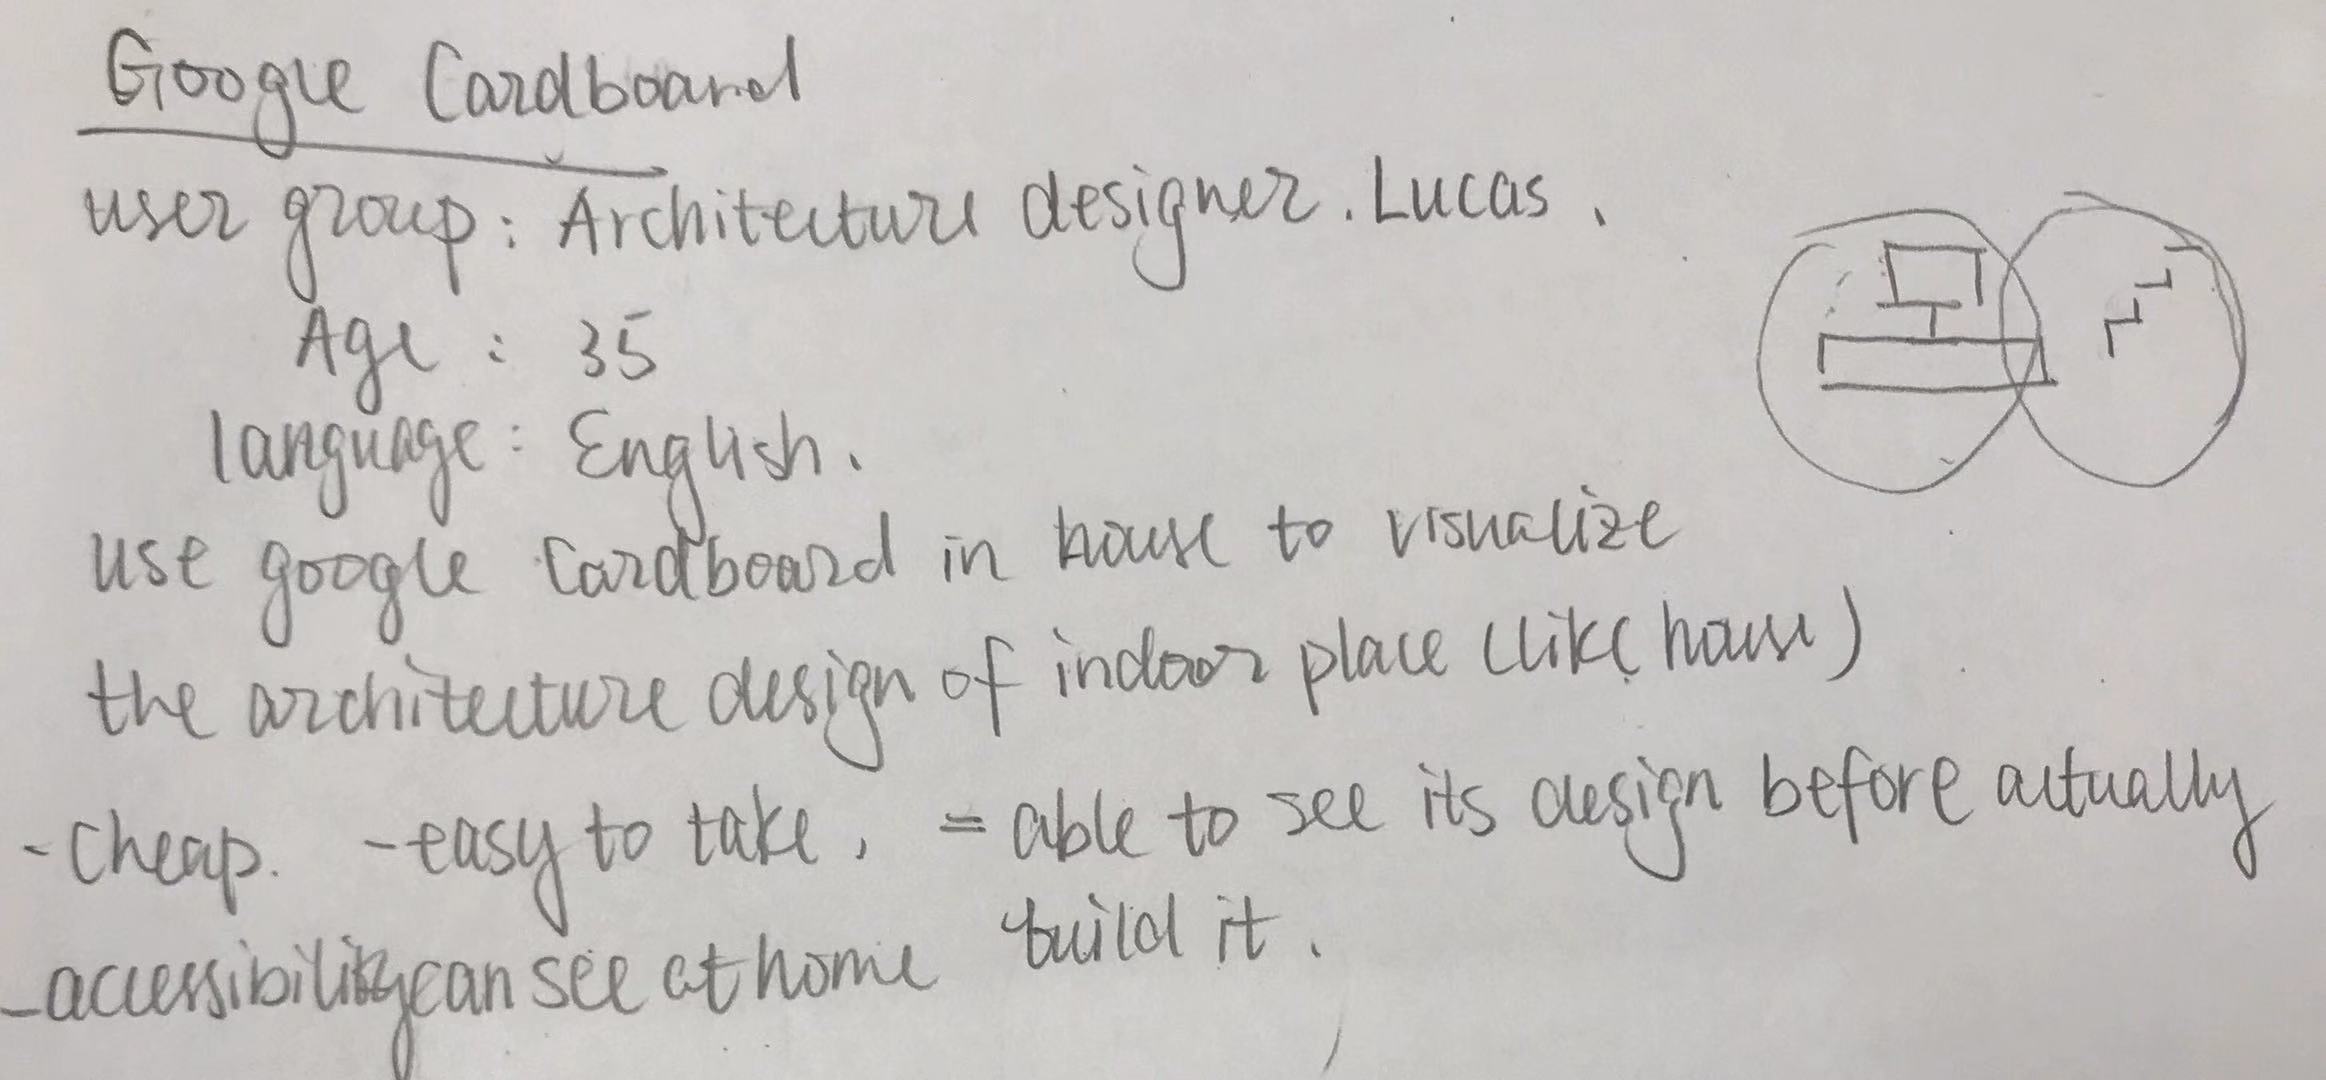 Google Cardboard
user group: Architecture designer. Lucas.
Age: 35
language: English.
use google Cardboard in house to visualize
the architecture design of indoor place (like house)
-cheap. -easy to take, = able to see its design before actually
build it.
-accessibility can see at home